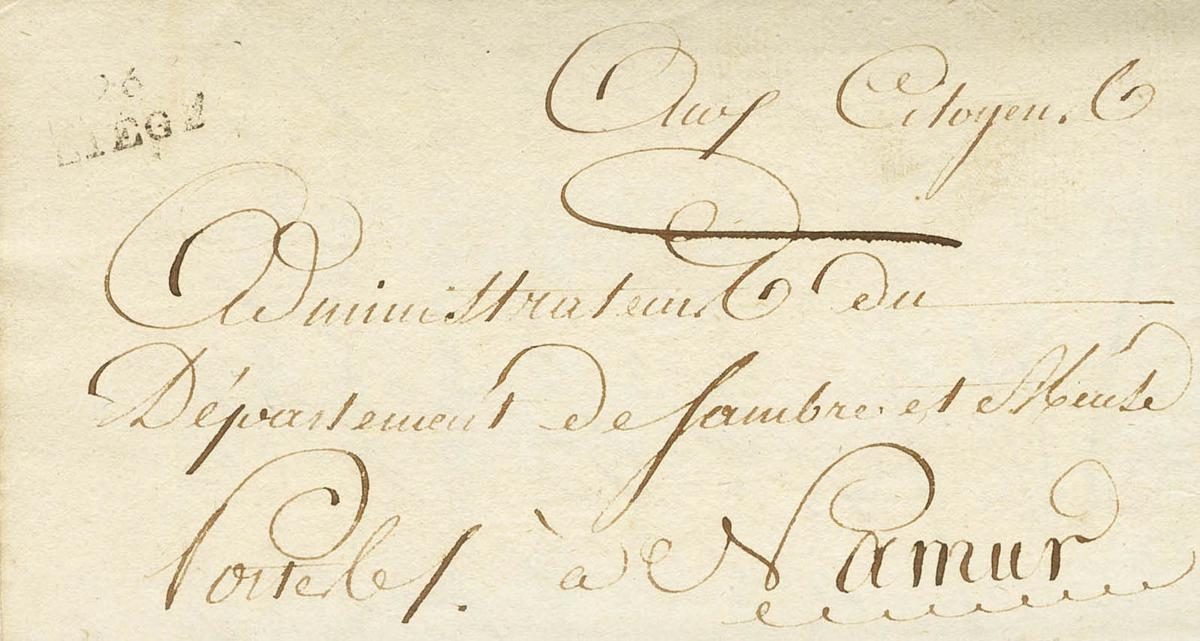 96
LIÉGE
Aux Citoyens
Administrateurs du
Département de Sambre et Meuse
à Namur